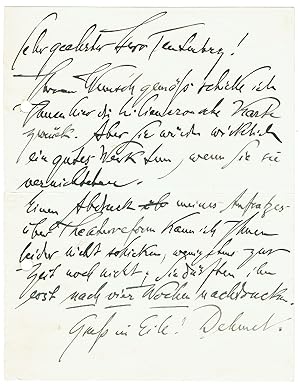 Sehr geehrter Herr Tentenberg!
Ihrem Wunsch gemäß schicke ich
Ihnen hier die Karte
zurück. Aber Sie würden wirklich
ein gutes Werk tun, wenn Sie sie
vernichteten.
Einen Abdruck meines Aufsatzes
über Theaterreform kann ich Ihnen
leider nicht schicken, wenigstens zur
Zeit noch nicht; Sie dürften ihn
erst nach vier Wochen nachdrucken.
Gruß in Eile! Dehmel.